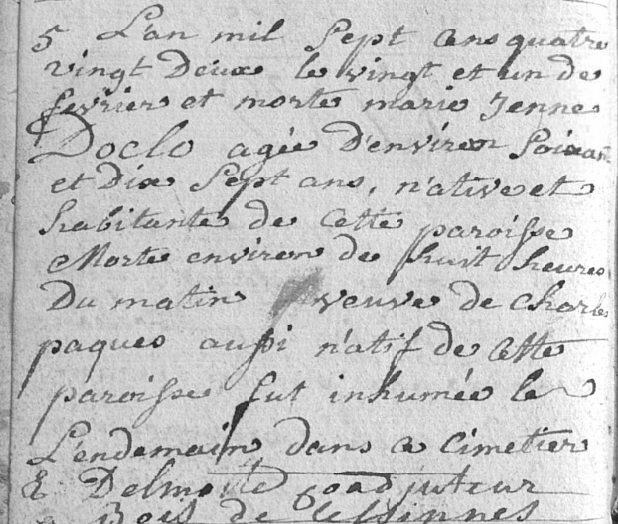 5 L'an mil Sept cens quatre
vingt Deux le vingt et un de
fevrier et morte marie Jenne
Doclo agée D'environ Soixan
et Dix Sept ans, n'ative et
habitante de cette paroisse
Morte environ de huit heures
Du matin veuve de Charles
paques aussi n'atif de cette
paroisse fut inhumée le
L'endemain dans ce Cimetier
Delmotte Coadjuteur
Bois de Lessinnes